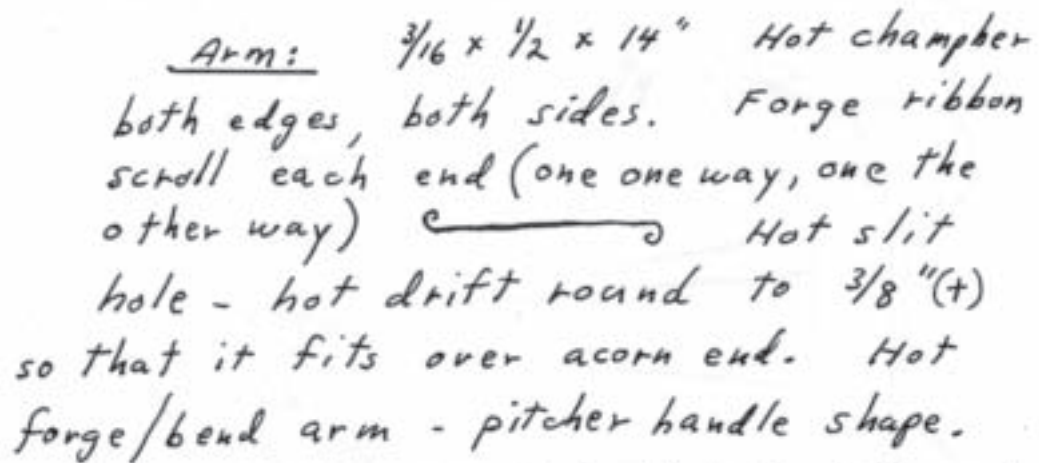 Arm: 3/16 x 1/2 x 14" Hot champher
both edges, both sides. Forge ribbon
scroll each end (one one way, one the
other way) Hot slit
hole - hot drift round to 3/8"(+)
so that it fits over acorn end. Hot
forge/bend arm - pitcher handle shape.